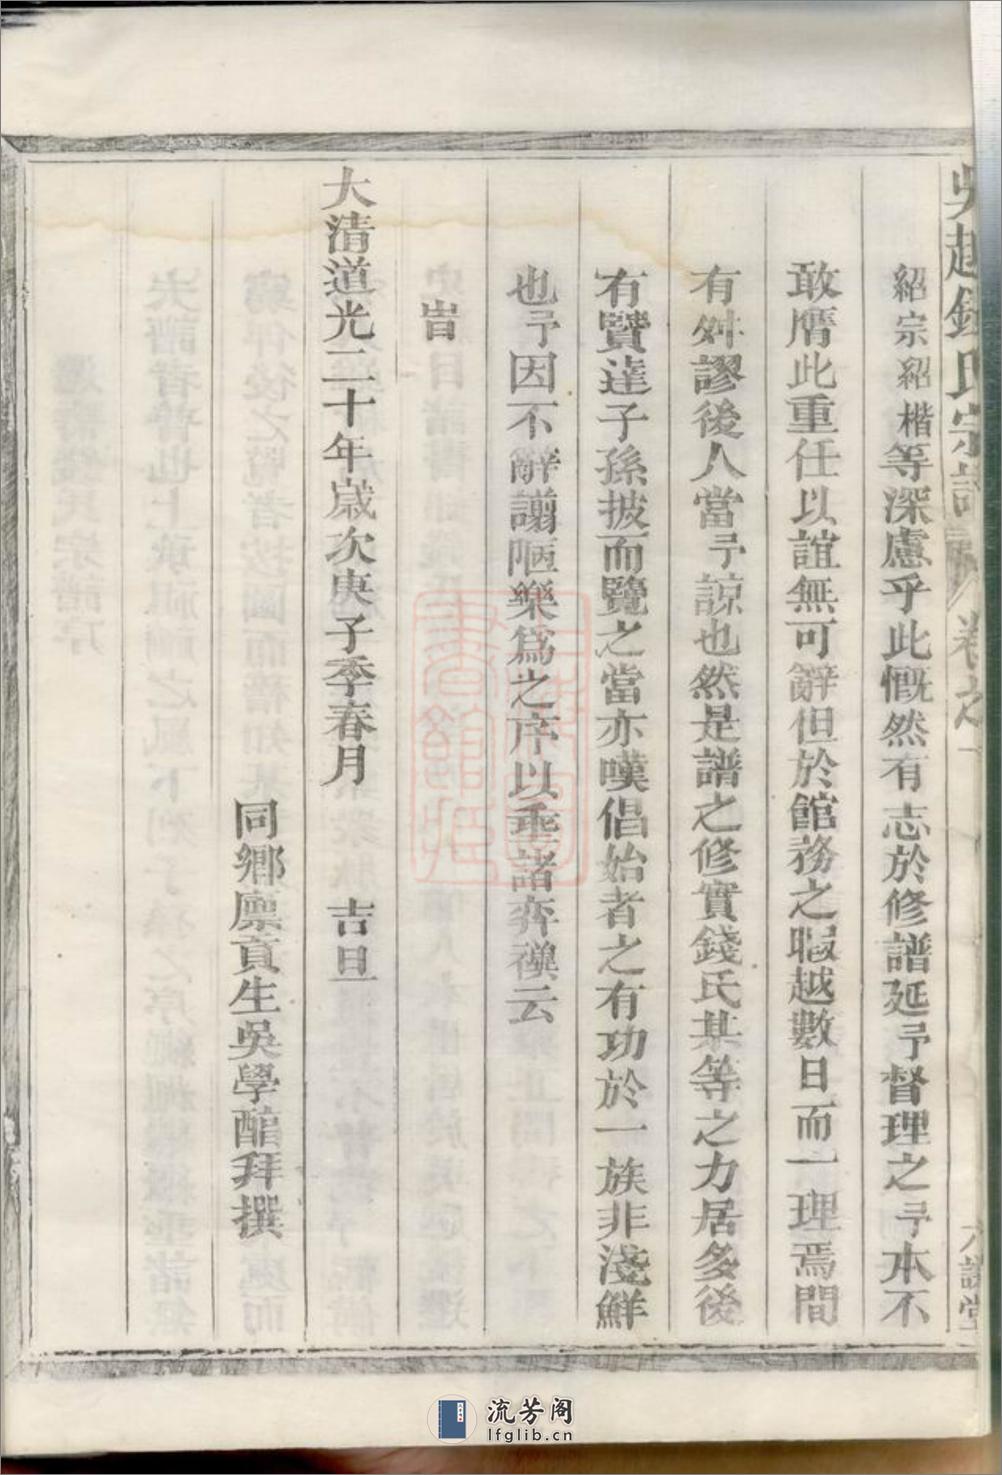 吳越錢氏宗譜 卷之一
紹宗紹楷等深慮乎此慨然有志於修譜延予督理之予本不
敢膺此重任以誼無可辭但於館務之暇越數日而一理焉間
有舛謬後人當予諒也然是譜之修實錢氏某等之力居多後
有賢達子孫披而覽之當亦嘆倡始者之有功於一族非淺鮮
也予因不辭譾陋樂爲之序以垂諸奕禩云
旹
大清道光二十年歲次庚子季春月 吉旦
同鄉廪貢生吳學酩拜撰
流芳阁
lfglib.cn